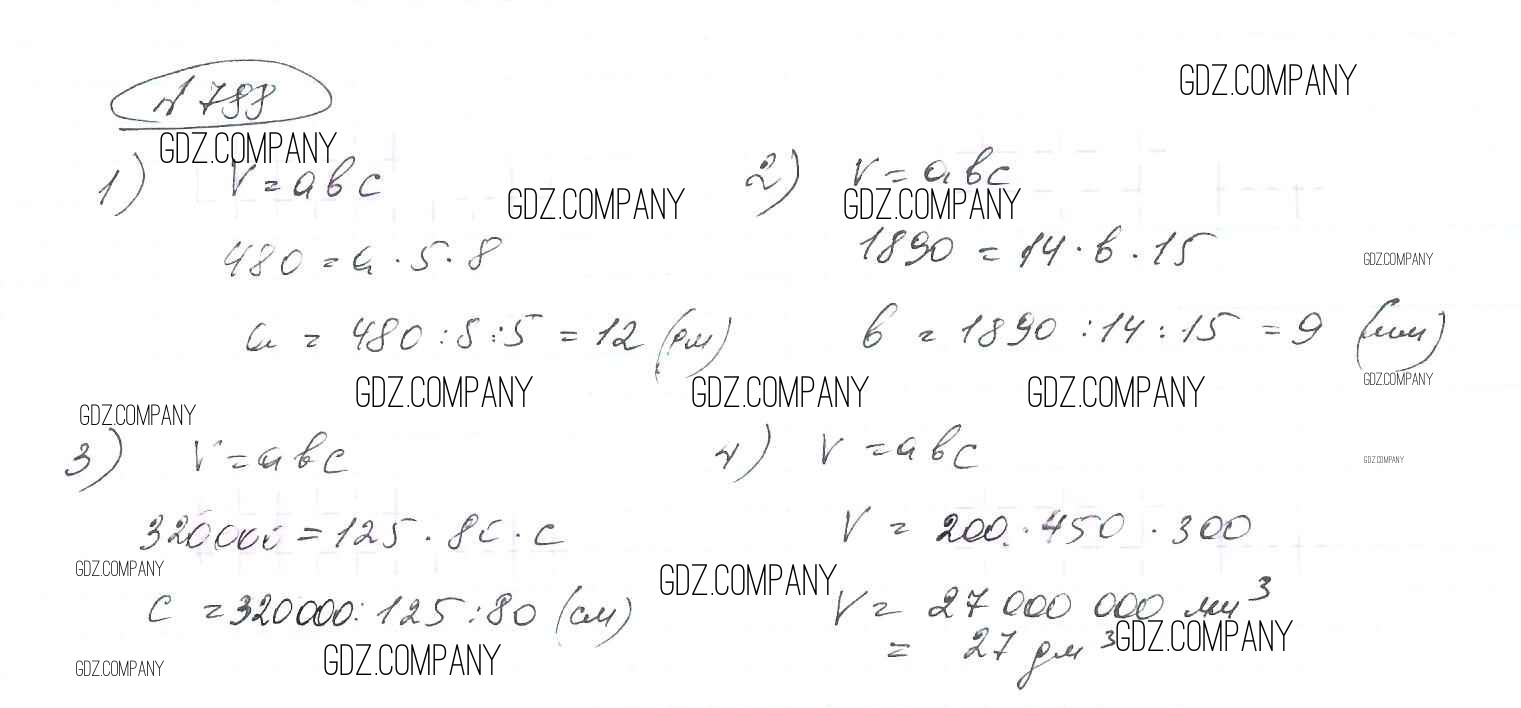 № 788
GDZ.COMPANY
GDZ.COMPANY
1) V = abc
2) V = abc
GDZ.COMPANY
GDZ.COMPANY
480 = a · 5 · 8
1890 = 14 · b · 15
GDZ.COMPANY
a = 480 : 8 : 5 = 12 (дм)
b = 1890 : 14 : 15 = 9 (мм)
GDZ.COMPANY
GDZ.COMPANY
GDZ.COMPANY
GDZ.COMPANY
GDZ.COMPANY
3) V = abc
4) V = abc
GDZ.COMPANY
320000 = 125 · 80 · c
V = 200 · 450 · 300
GDZ.COMPANY
GDZ.COMPANY
c = 320000 : 125 : 80 (см)
V = 27 000 000 мм³
= 27 дм³
GDZ.COMPANY
GDZ.COMPANY
GDZ.COMPANY